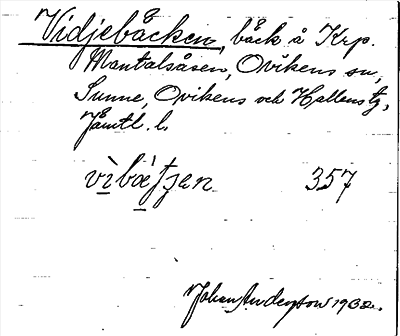 Vidjebäcken, bäck å Krp.
Mantalsåsen, Ovikens sn,
Sunne, Ovikens och Hallens tg,
Jämtl. l.
vìbä́tʃen 357
Johan Anderson 1932.